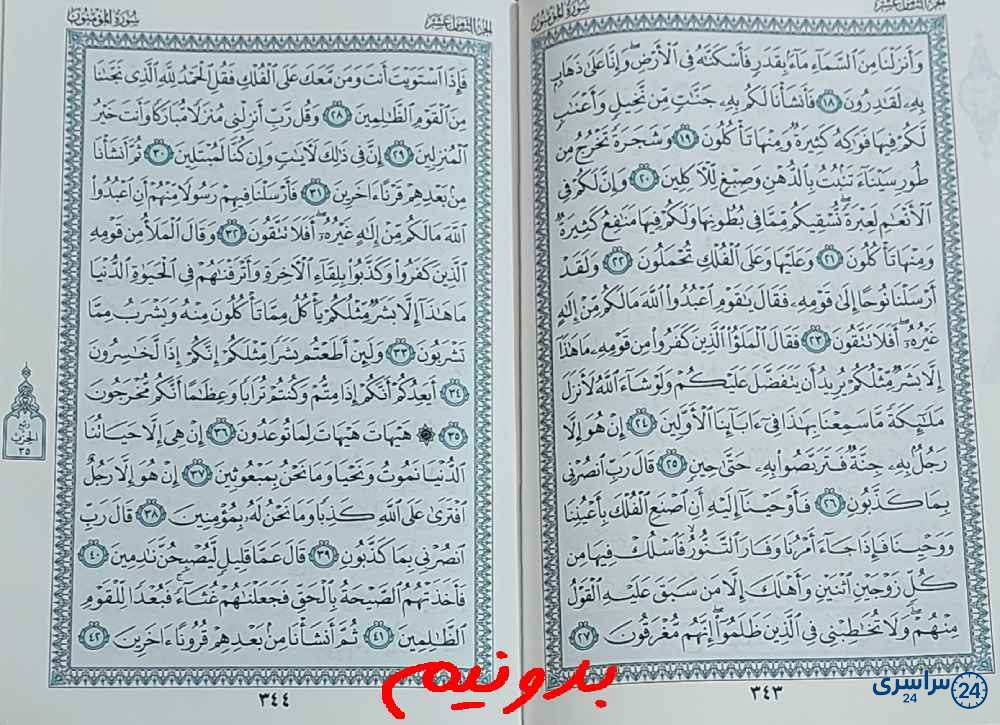 الجزء الثامن عشر
سورة المؤمنون
وَأَنزَلْنَا مِنَ السَّمَاءِ مَاءً بِقَدَرٍ فَأَسْكَنَّاهُ فِي الْأَرْضِ وَإِنَّا عَلَىٰ ذَهَابٍ
بِهِ لَقَادِرُونَ ١٨ فَأَنشَأْنَا لَكُم بِهِ جَنَّاتٍ مِّن نَّخِيلٍ وَأَعْنَابٍ
لَّكُمْ فِيهَا فَوَاكِهُ كَثِيرَةٌ وَمِنْهَا تَأْكُلُونَ ١٩ وَشَجَرَةً تَخْرُجُ مِن
طُورِ سَيْنَاءَ تَنبُتُ بِالدُّهْنِ وَصِبْغٍ لِّلْآكِلِينَ ٢٠ وَإِنَّ لَكُمْ فِي
الْأَنْعَامِ لَعِبْرَةً نُّسْقِيكُم مِّمَّا فِي بُطُونِهَا وَلَكُمْ فِيهَا مَنَافِعُ كَثِيرَةٌ
وَمِنْهَا تَأْكُلُونَ ٢١ وَعَلَيْهَا وَعَلَى الْفُلْكِ تُحْمَلُونَ ٢٢ وَلَقَدْ
أَرْسَلْنَا نُوحًا إِلَىٰ قَوْمِهِ فَقَالَ يَاقَوْمِ اعْبُدُوا اللَّهَ مَا لَكُم مِّنْ إِلَٰهٍ
غَيْرُهُ أَفَلَا تَتَّقُونَ ٢٣ فَقَالَ الْمَلَؤُا الَّذِينَ كَفَرُوا مِن قَوْمِهِ مَا هَٰذَا
إِلَّا بَشَرٌ مِّثْلُكُمْ يُرِيدُ أَن يَتَفَضَّلَ عَلَيْكُمْ وَلَوْ شَاءَ اللَّهُ لَأَنزَلَ
مَلَائِكَةً مَّا سَمِعْنَا بِهَٰذَا فِي آبَائِنَا الْأَوَّلِينَ ٢٤ إِنْ هُوَ إِلَّا
رَجُلٌ بِهِ جِنَّةٌ فَتَرَبَّصُوا بِهِ حَتَّىٰ حِينٍ ٢٥ قَالَ رَبِّ انصُرْنِي
بِمَا كَذَّبُونِ ٢٦ فَأَوْحَيْنَا إِلَيْهِ أَنِ اصْنَعِ الْفُلْكَ بِأَعْيُنِنَا
وَوَحْيِنَا فَإِذَا جَاءَ أَمْرُنَا وَفَارَ التَّنُّورُ فَاسْلُكْ فِيهَا مِن
كُلٍّ زَوْجَيْنِ اثْنَيْنِ وَأَهْلَكَ إِلَّا مَن سَبَقَ عَلَيْهِ الْقَوْلُ
مِنْهُمْ وَلَا تُخَاطِبْنِي فِي الَّذِينَ ظَلَمُوا إِنَّهُم مُّغْرَقُونَ ٢٧
٣٤٣
الجزء الثامن عشر
سورة المؤمنون
فَإِذَا اسْتَوَيْتَ أَنتَ وَمَن مَّعَكَ عَلَى الْفُلْكِ فَقُلِ الْحَمْدُ لِلَّهِ الَّذِي نَجَّانَا
مِنَ الْقَوْمِ الظَّالِمِينَ ٢٨ وَقُل رَّبِّ أَنزِلْنِي مُنزَلًا مُّبَارَكًا وَأَنتَ خَيْرُ
الْمُنزِلِينَ ٢٩ إِنَّ فِي ذَٰلِكَ لَآيَاتٍ وَإِن كُنَّا لَمُبْتَلِينَ ٣٠ ثُمَّ أَنشَأْنَا
مِن بَعْدِهِمْ قَرْنًا آخَرِينَ ٣١ فَأَرْسَلْنَا فِيهِمْ رَسُولًا مِّنْهُمْ أَنِ اعْبُدُوا
اللَّهَ مَا لَكُم مِّنْ إِلَٰهٍ غَيْرُهُ أَفَلَا تَتَّقُونَ ٣٢ وَقَالَ الْمَلَأُ مِن قَوْمِهِ
الَّذِينَ كَفَرُوا وَكَذَّبُوا بِلِقَاءِ الْآخِرَةِ وَأَتْرَفْنَاهُمْ فِي الْحَيَوٰةِ الدُّنْيَا
مَا هَٰذَا إِلَّا بَشَرٌ مِّثْلُكُمْ يَأْكُلُ مِمَّا تَأْكُلُونَ مِنْهُ وَيَشْرَبُ مِمَّا
تَشْرَبُونَ ٣٣ وَلَئِنْ أَطَعْتُم بَشَرًا مِّثْلَكُمْ إِنَّكُمْ إِذًا لَّخَاسِرُونَ
٣٤ أَيَعِدُكُمْ أَنَّكُمْ إِذَا مِتُّمْ وَكُنتُمْ تُرَابًا وَعِظَامًا أَنَّكُم مُّخْرَجُونَ
٣٥ ۞ هَيْهَاتَ هَيْهَاتَ لِمَا تُوعَدُونَ ٣٦ إِنْ هِيَ إِلَّا حَيَاتُنَا
الدُّنْيَا نَمُوتُ وَنَحْيَا وَمَا نَحْنُ بِمَبْعُوثِينَ ٣٧ إِنْ هُوَ إِلَّا رَجُلٌ
افْتَرَىٰ عَلَى اللَّهِ كَذِبًا وَمَا نَحْنُ لَهُ بِمُؤْمِنِينَ ٣٨ قَالَ رَبِّ
انصُرْنِي بِمَا كَذَّبُونِ ٣٩ قَالَ عَمَّا قَلِيلٍ لَّيُصْبِحُنَّ نَادِمِينَ ٤٠
فَأَخَذَتْهُمُ الصَّيْحَةُ بِالْحَقِّ فَجَعَلْنَاهُمْ غُثَاءً فَبُعْدًا لِّلْقَوْمِ
الظَّالِمِينَ ٤١ ثُمَّ أَنشَأْنَا مِن بَعْدِهِمْ قُرُونًا آخَرِينَ ٤٢
٣٤٤
ربع
الحزب
٣٥
بدونیم
سراسری 24
24